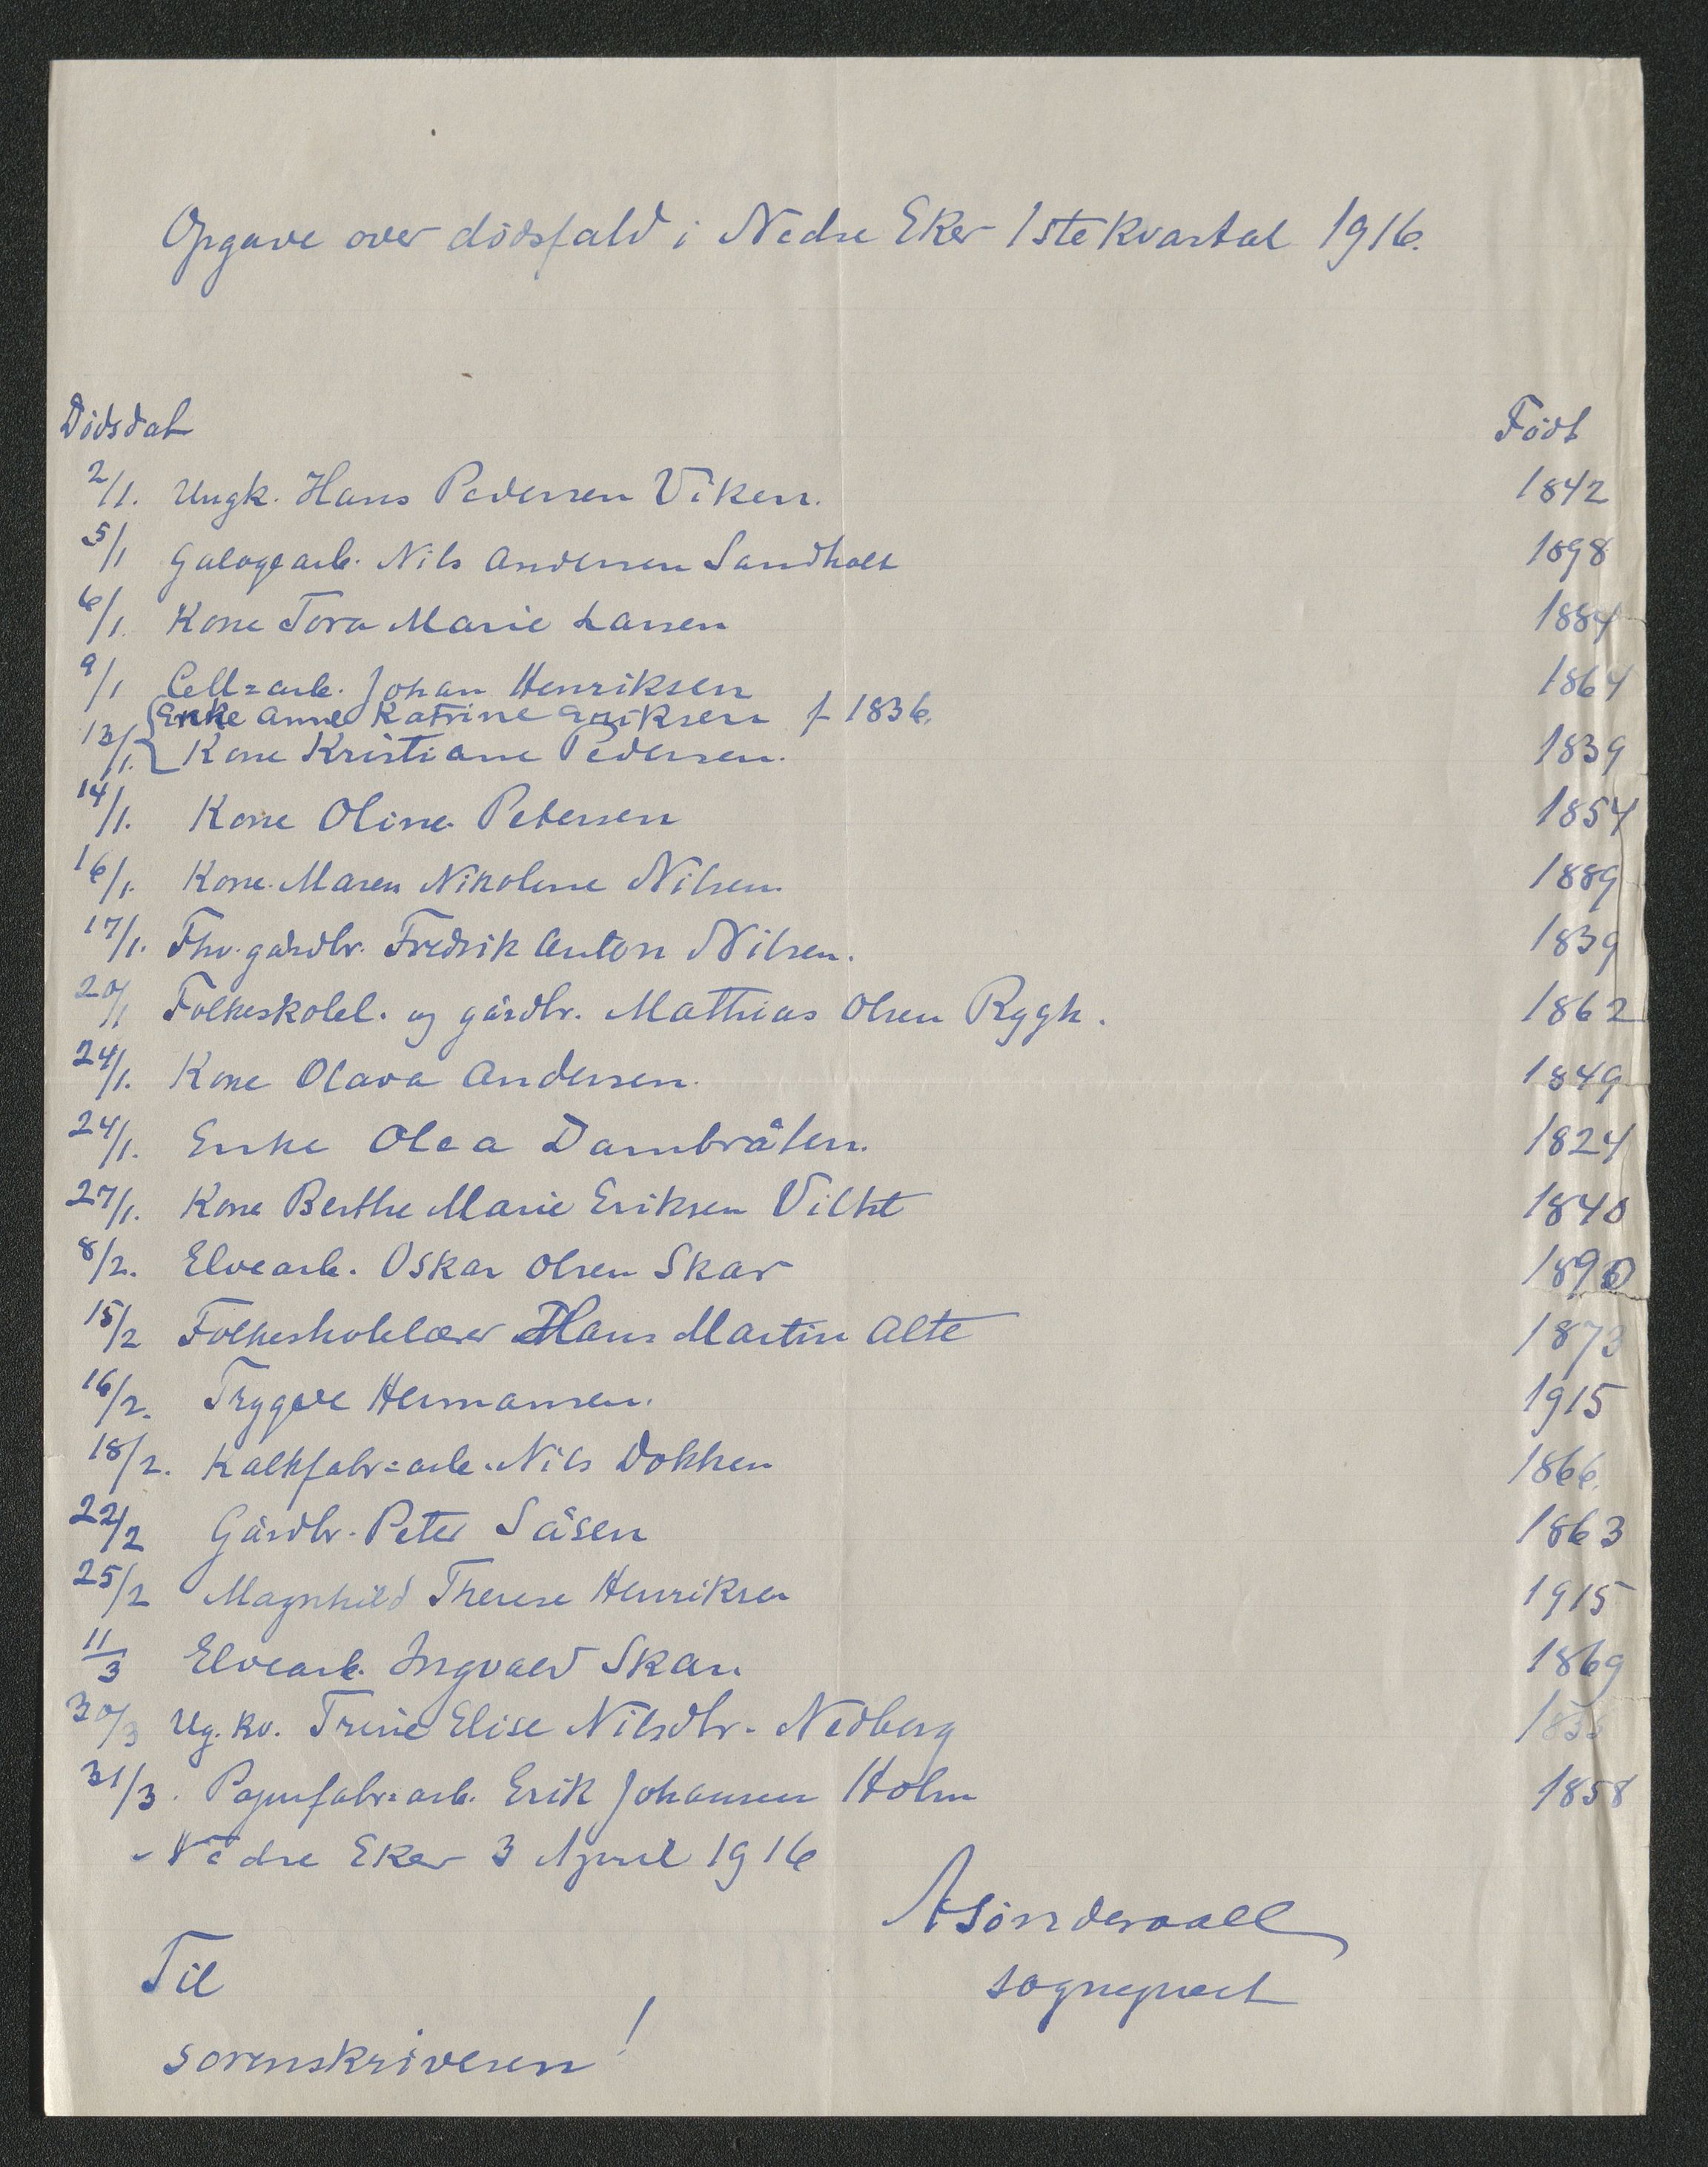 Opgave over dödsfald i Nedre Eker 1ste kvartal 1916.
Dödsdat Födt
2/1. Ungk. Hans Pedersen Viken. 1842
5/1 Galogearb. Nils Andersen Sandholt 1898
6/1. Kone Tora Marie Larsen 1884
9/1 Cell=arb. Johan Henriksen 1864
Enke Anne Katrine Eriksen f 1836.
13/1. Kone Kristiane Pedersen. 1839
14/1. Kone Oline Petersen 1854
16/1. Kone Maren Nikoline Nilsen. 1889
17/1. Fhv. gårdbr. Fredrik Anton Nilsen. 1839
20/1 Folkeskolel. og gårdbr. Mathias Olsen Rygh. 1862
24/1. Kone Olava Andersen. 1849
24/1. Enke Olea Dambråten. 1824
27/1. Kone Berthe Marie Eriksen Vilht 1840
8/2. Elvearb. Oskar Olsen Skar 1890
15/2 Folkeskolelærer Hans Martin Alte 1873
16/2. Trygve Hermansen. 1915
18/2. Kalkfabr=arb. Nils Dokken 1866.
22/2 Gårdbr. Peter Såsen 1863
25/2 Magnhild Therese Henriksen 1915
11/3 Elvearb. Ingvald Skar. 1869
30/3 Ug. kv. Trine Elise Nilsdtr. Nedberg
31/3. Papirfabr=arb. Erik Johansen Holm 1858
Nedre Eker 3 April 1916
ASönderaall
sogneprest
Til
sorenskriveren!